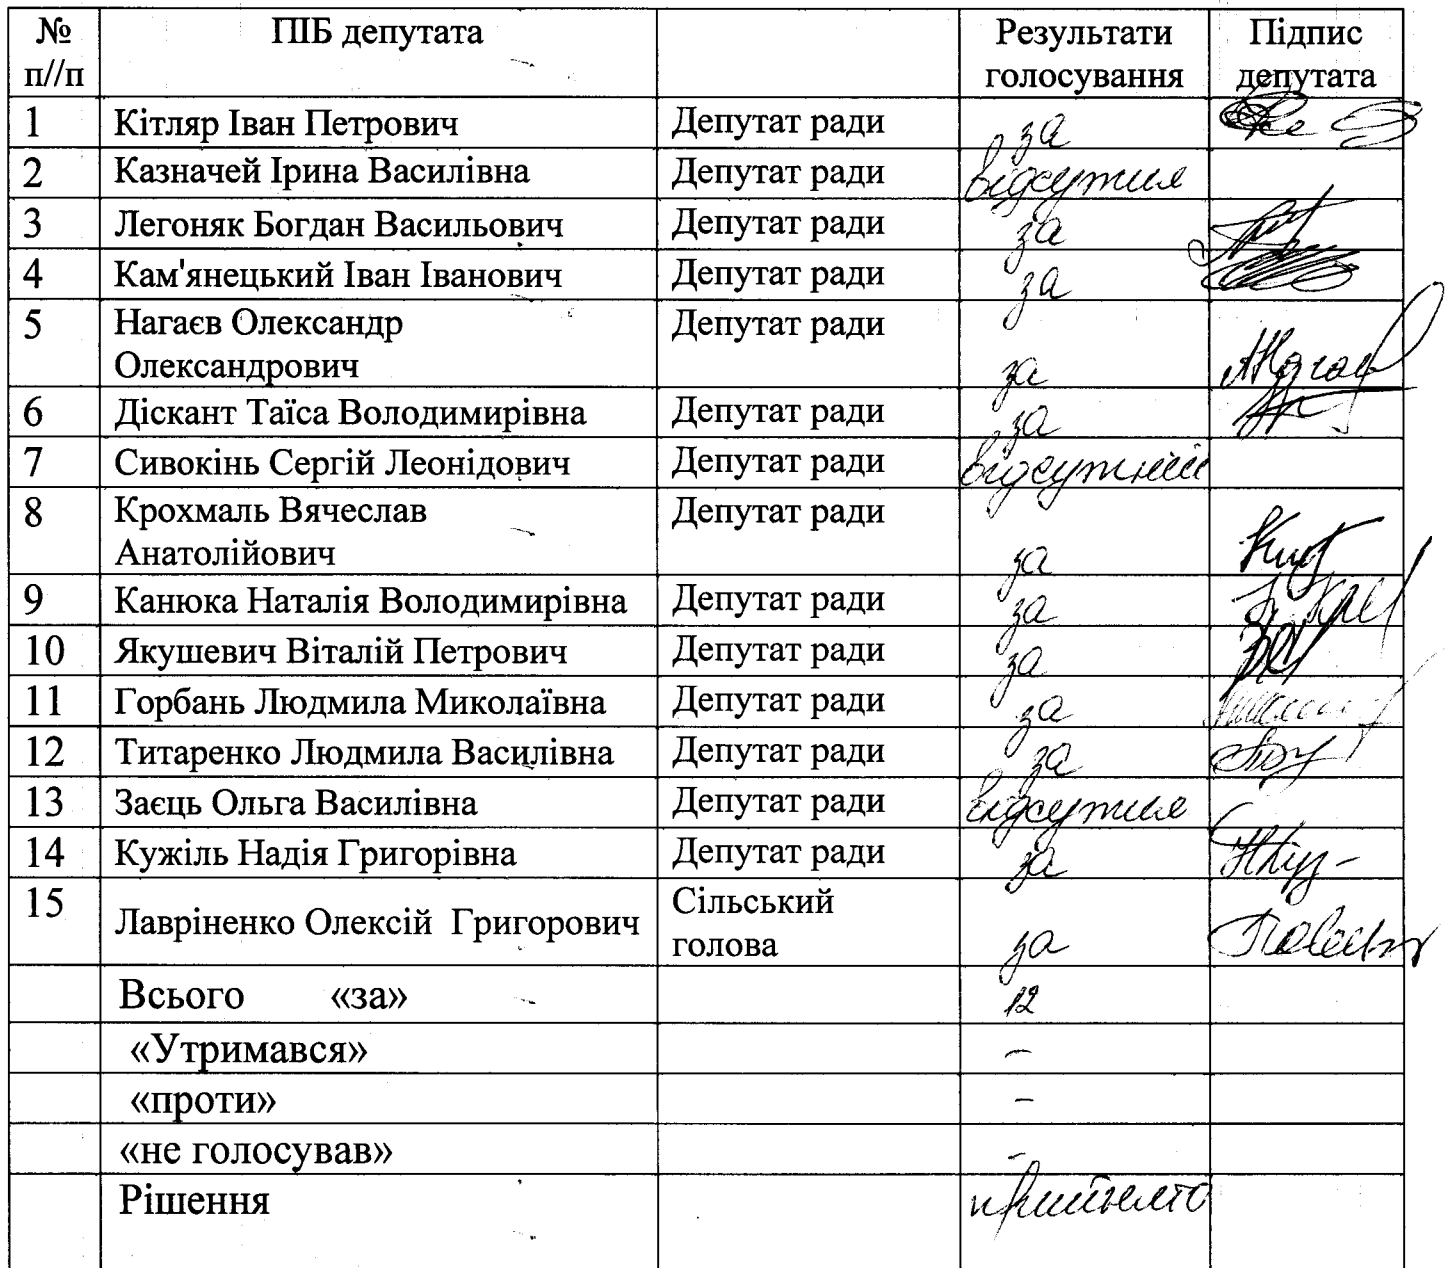 № п//п ПІБ депутата Результати голосування Підпис депутата
1 Кітляр Іван Петрович Депутат ради за
2 Казначей Ірина Василівна Депутат ради відсутня
3 Легоняк Богдан Васильович Депутат ради за
4 Кам'янецький Іван Іванович Депутат ради за
5 Нагаєв Олександр Олександрович Депутат ради за
6 Діскант Таїса Володимирівна Депутат ради за
7 Сивокінь Сергій Леонідович Депутат ради відсутній
8 Крохмаль Вячеслав Анатолійович Депутат ради за
9 Канюка Наталія Володимирівна Депутат ради за
10 Якушевич Віталій Петрович Депутат ради за
11 Горбань Людмила Миколаївна Депутат ради за
12 Титаренко Людмила Василівна Депутат ради за
13 Заєць Ольга Василівна Депутат ради відсутня
14 Кужіль Надія Григорівна Депутат ради за
15 Лавріненко Олексій Григорович Сільський голова за
Всього «за» 12
«Утримався» –
«проти» –
«не голосував» –
Рішення прийнято